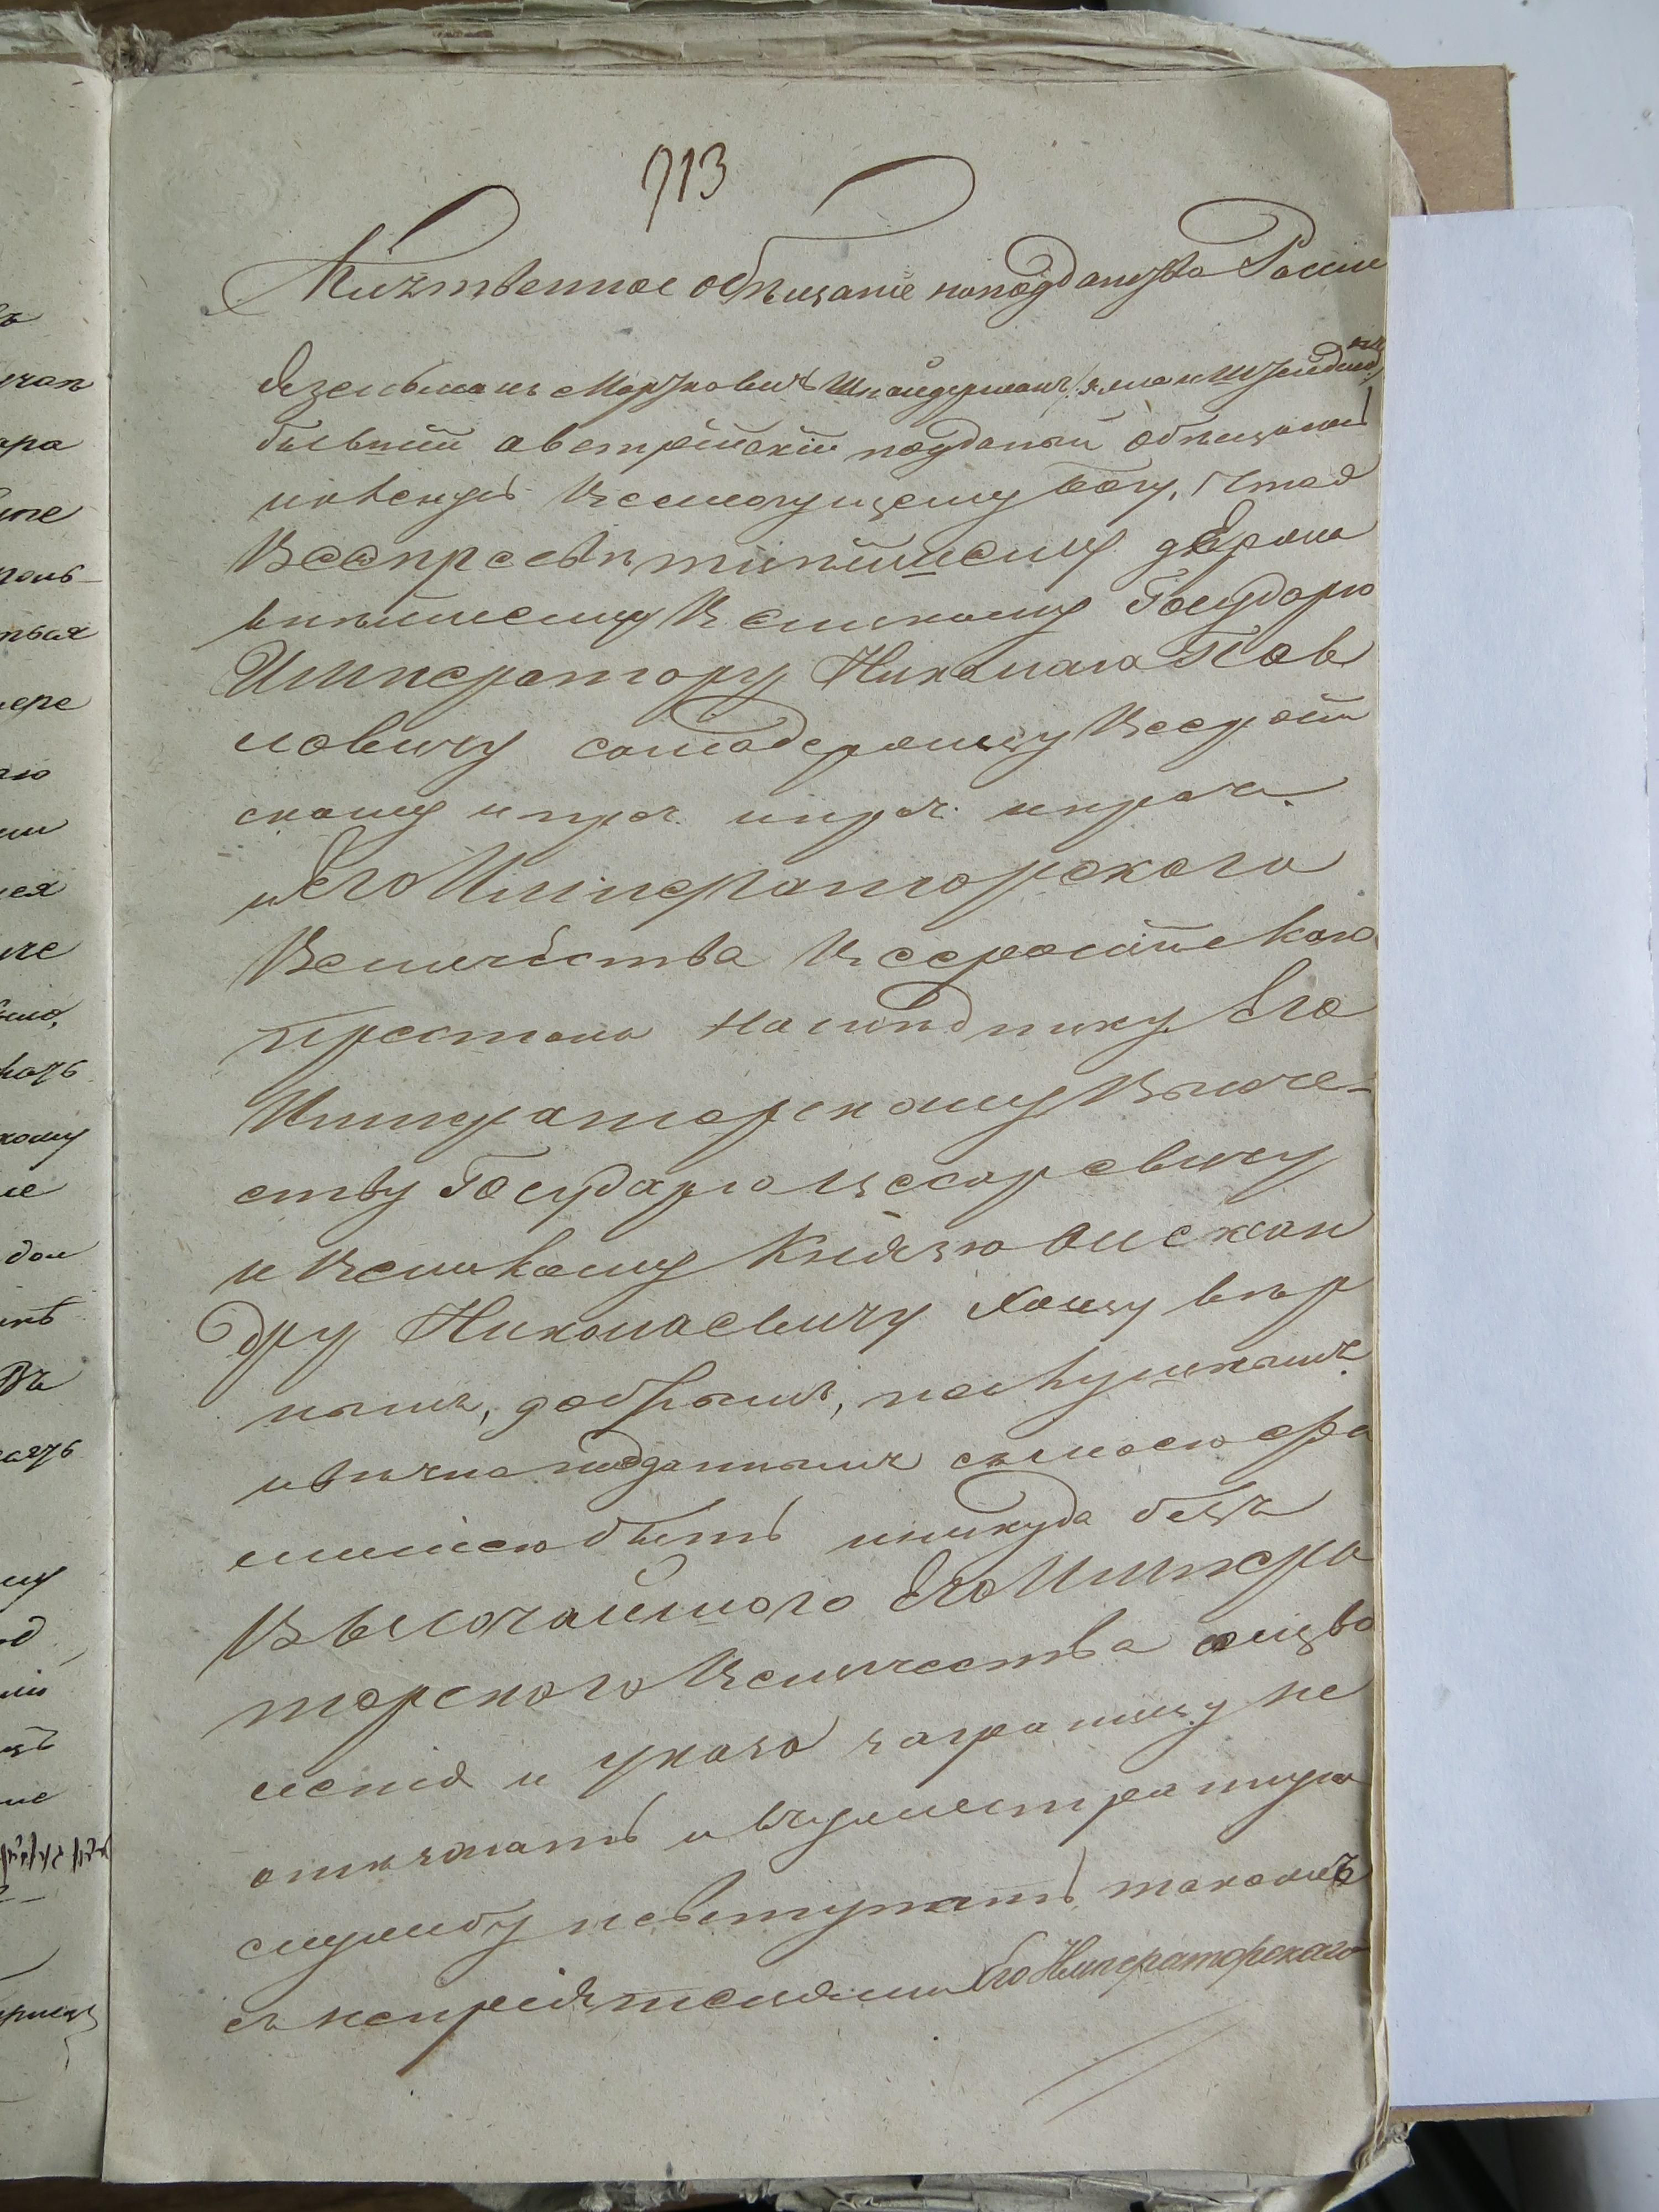 713
Клятвенное обѣщаніе на подданство Россіи
Я Зельманъ Марковичъ Шнайдерманъ
бывшій австрійскій подданый обѣщаюсь
и кленусь Всемогущему Богу, Чтоя
Всепресвѣтлѣйшему держа
внѣйшему Великому Государю
Императору Николаю Пав
ловичу самодержцу Всерой
скому и проч. и проч. и проч.
и Его Императорскаго
Величества Всероссійскаго
престола Наслѣднику Его
Императорскому Высоче-
ству Государю Цесаревичу
и Великому Князю Алексан
дру Николаевичу Хощу вѣр
нымъ, добрымъ, послушнымъ
и вѣчно подданнымъ съ моею фа
миліею быть и никуда безъ
Высочайшаго Его Импера
торскаго Величества соизво
ленія и указа заграницу не
отъѣзжать и въ чужестранную
службу невступать, такожъ
съ непріятелями Его Императорскаго